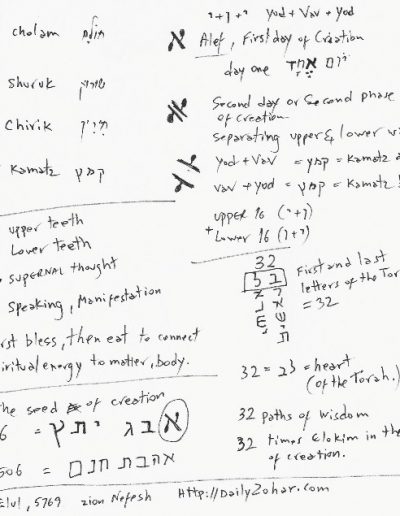 cholam חולם
Shuruk שורוק
Chirik חיריק
Kamatz קמץ
upper teeth
Lower teeth
SUPERNAL thought
Speaking, Manifestation
bless, then eat to connect
energy to matter, body.
the seed of creation
6 = א ב ג י ת ץ
506 = אהבת חנם
Elul, 5769 zion Nefesh Http://DailyZohar.com
י+ו+י yod + Vav + yod
א Alef, First day of Creation
day one יום אחד
Second day or Second phase
of creation.
separating upper & lower
yod + Vav = קמץ = kamatz
vav + yod = קמץ = kamatz
upper 16 (י+ו)
+ Lower 16 (ו+י)
32
First and last
letters of the
= 32
32 = לב = heart
(of the Torah.)
32 paths of wisdom
32 times Elokim in the
of creation.